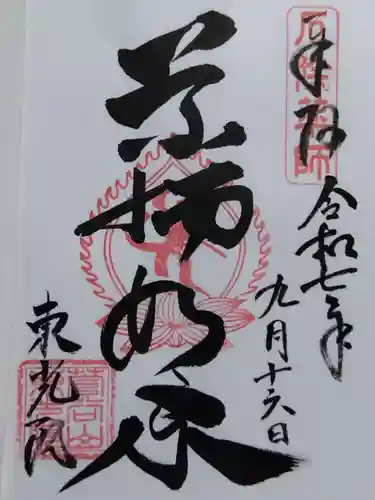 厄除薬師
奉拝
令和七年
九月十六日
薬師如来
東光院